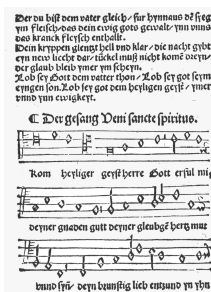 Der du bist dem vater gleich / fur hynnaus dē syeg
ym fleysch / das dein ewig gots gewalt / ynn vnns
das kranck fleysch enthallt.
Dein kryppen glentzt hell vnd klar / die nacht gybt
eyn new liecht dar / tückel muß nicht komē dreyn /
der glaub bleib ymer ym scheyn.
Lob sey Gott dem vatter thon / Lob sey got seym
eyngen son. Lob sey got dem heyligen geyst / ymer
vnnd ynn ewigkeyt.
¶ Der gesang Veni sancte spiritus.
Kom heyliger geyst herre Gott erful mi
deyner gnaden gutt deyner gleubgē hertz mut
vnnd syn̄ deyn brunstig lieb entzund yn yhn